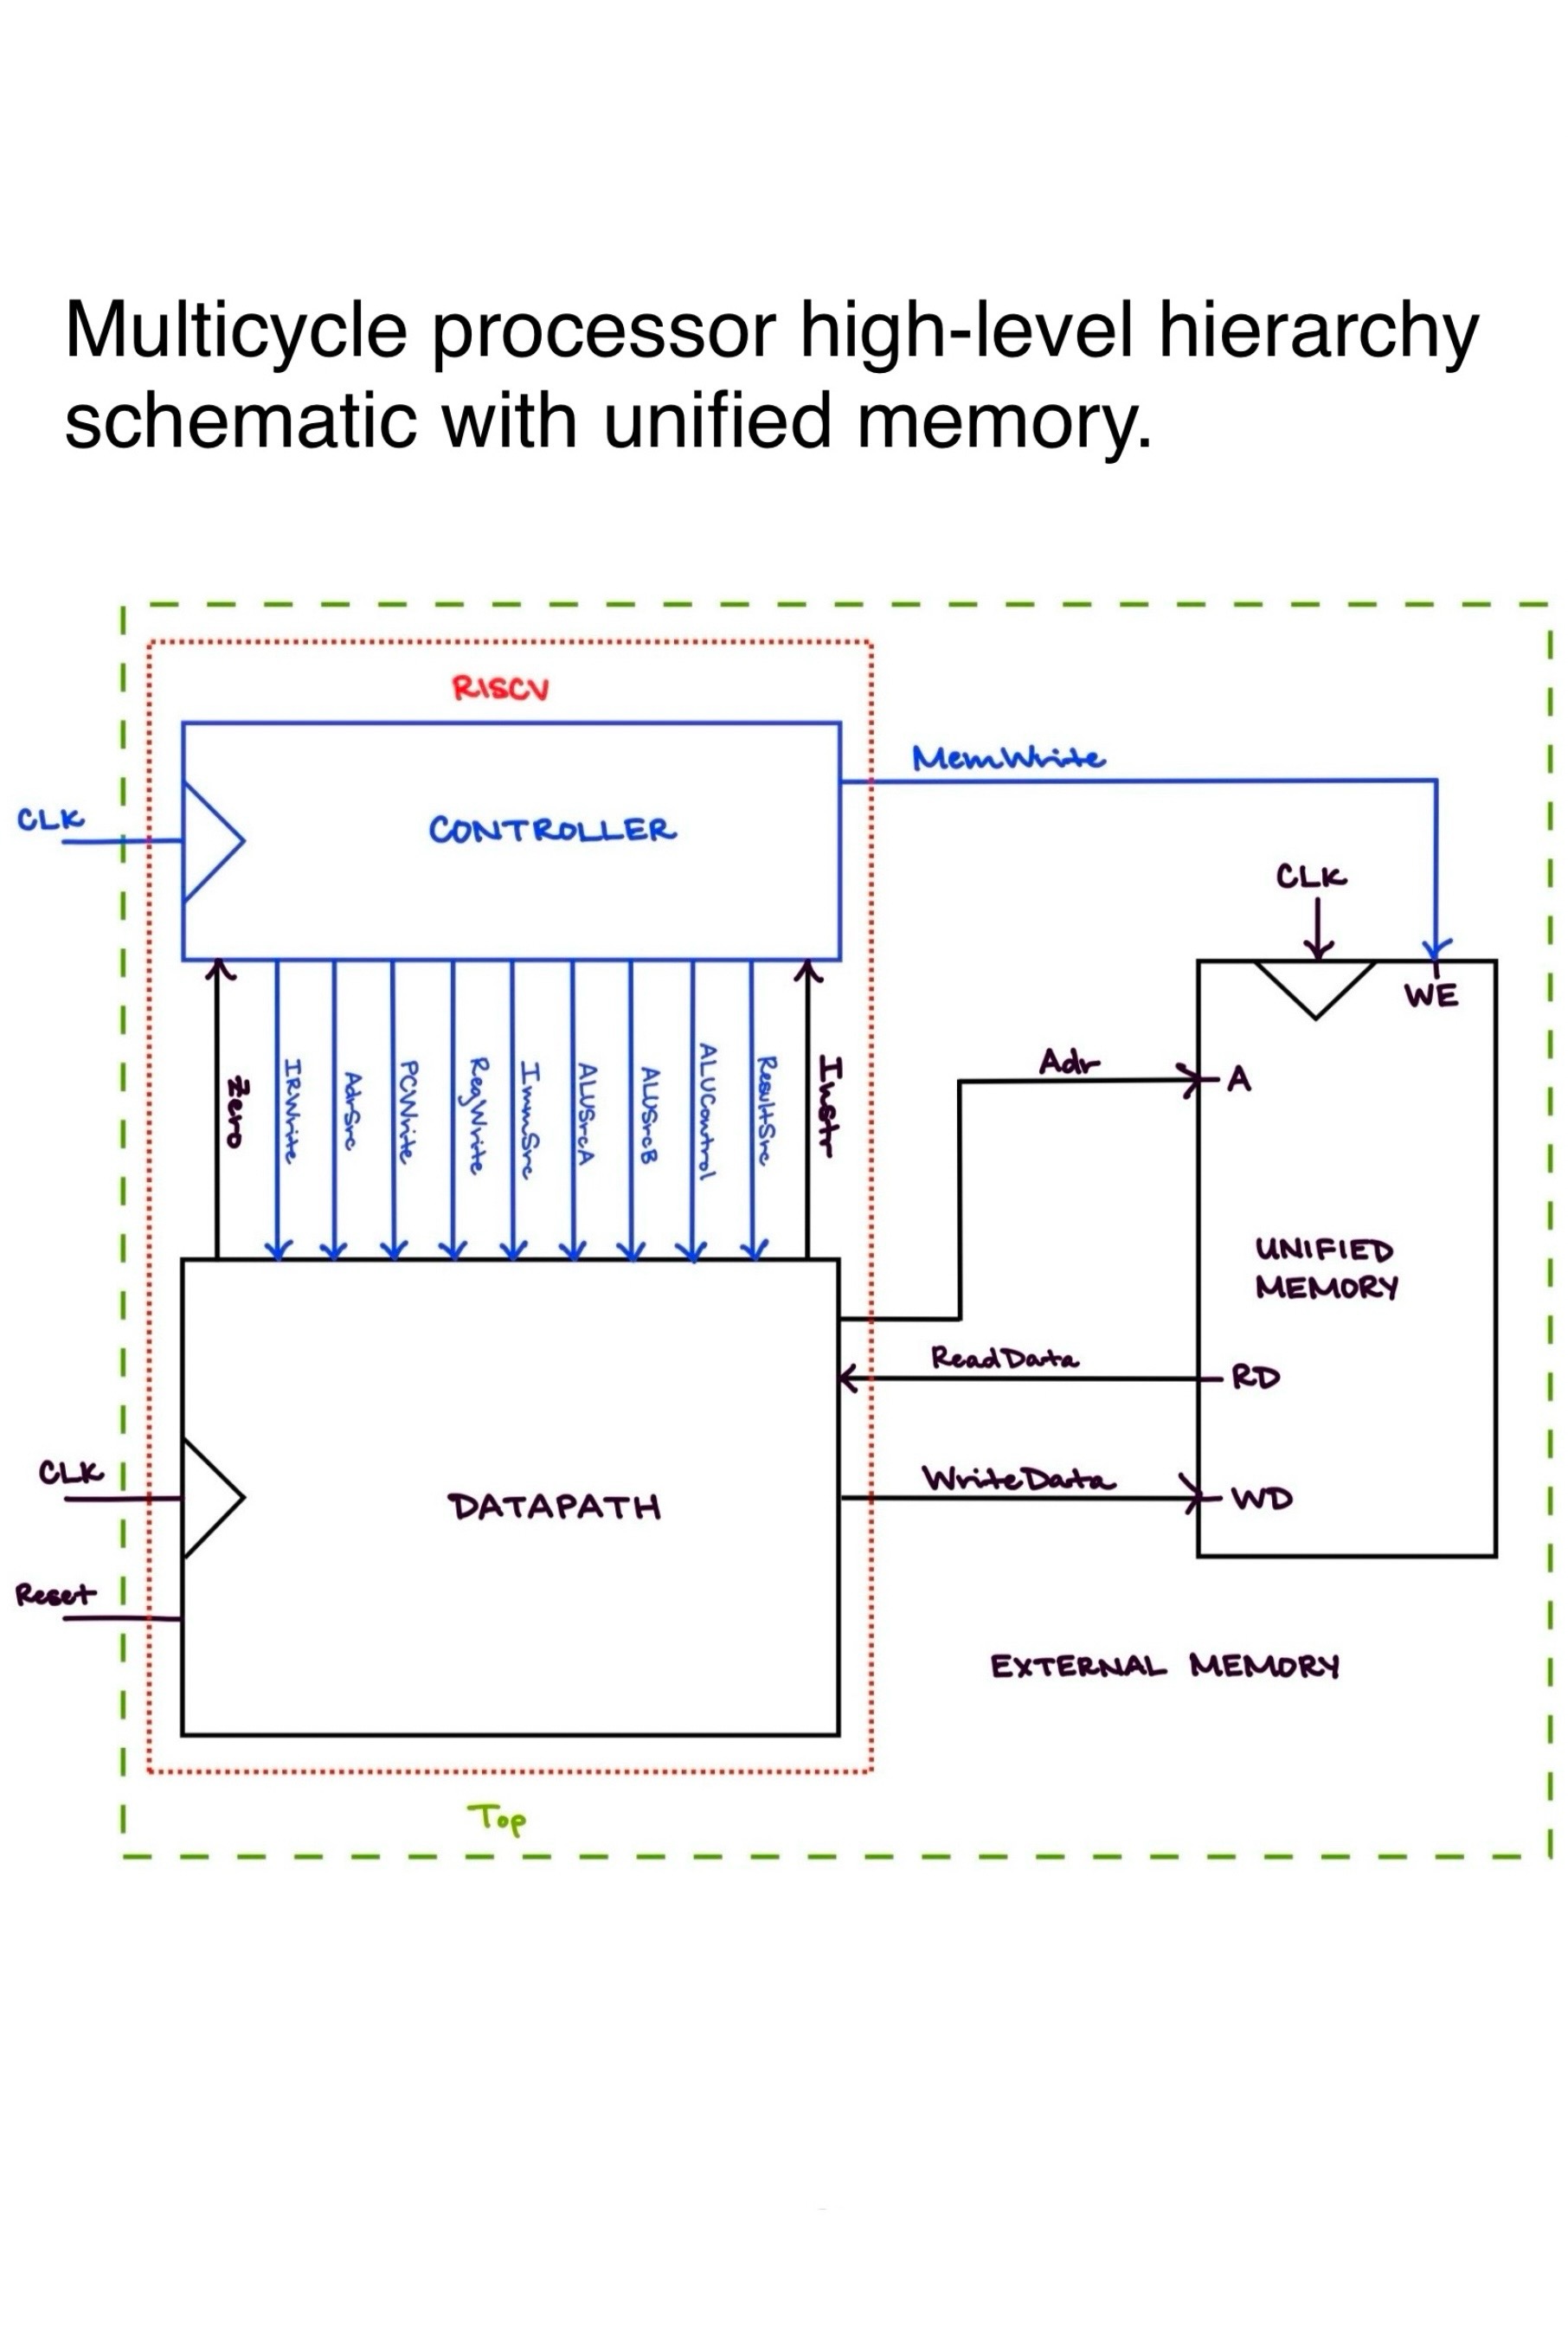 Multicycle processor high-level hierarchy
schematic with unified memory.
RISCV
MemWrite
CLK
CONTROLLER
CLK
WE
Zero
IRWrite
AdrSrc
PCWrite
RegWrite
ImmSrc
ALUSrcA
ALUSrcB
ALUControl
ResultSrc
Instr
Adr
A
UNIFIED
MEMORY
ReadData
RD
CLK
DATAPATH
WriteData
WD
Reset
EXTERNAL MEMORY
Top